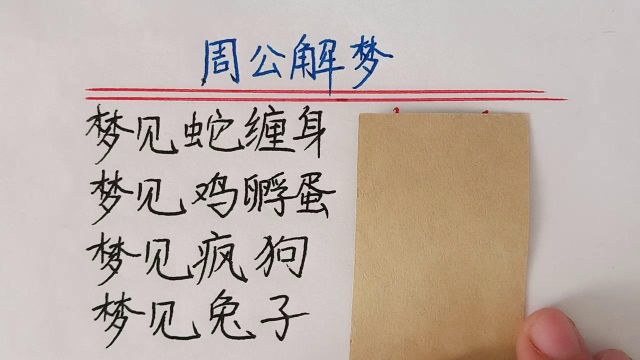 周公解梦
梦见蛇缠身
梦见鸡孵蛋
梦见疯狗
梦见兔子